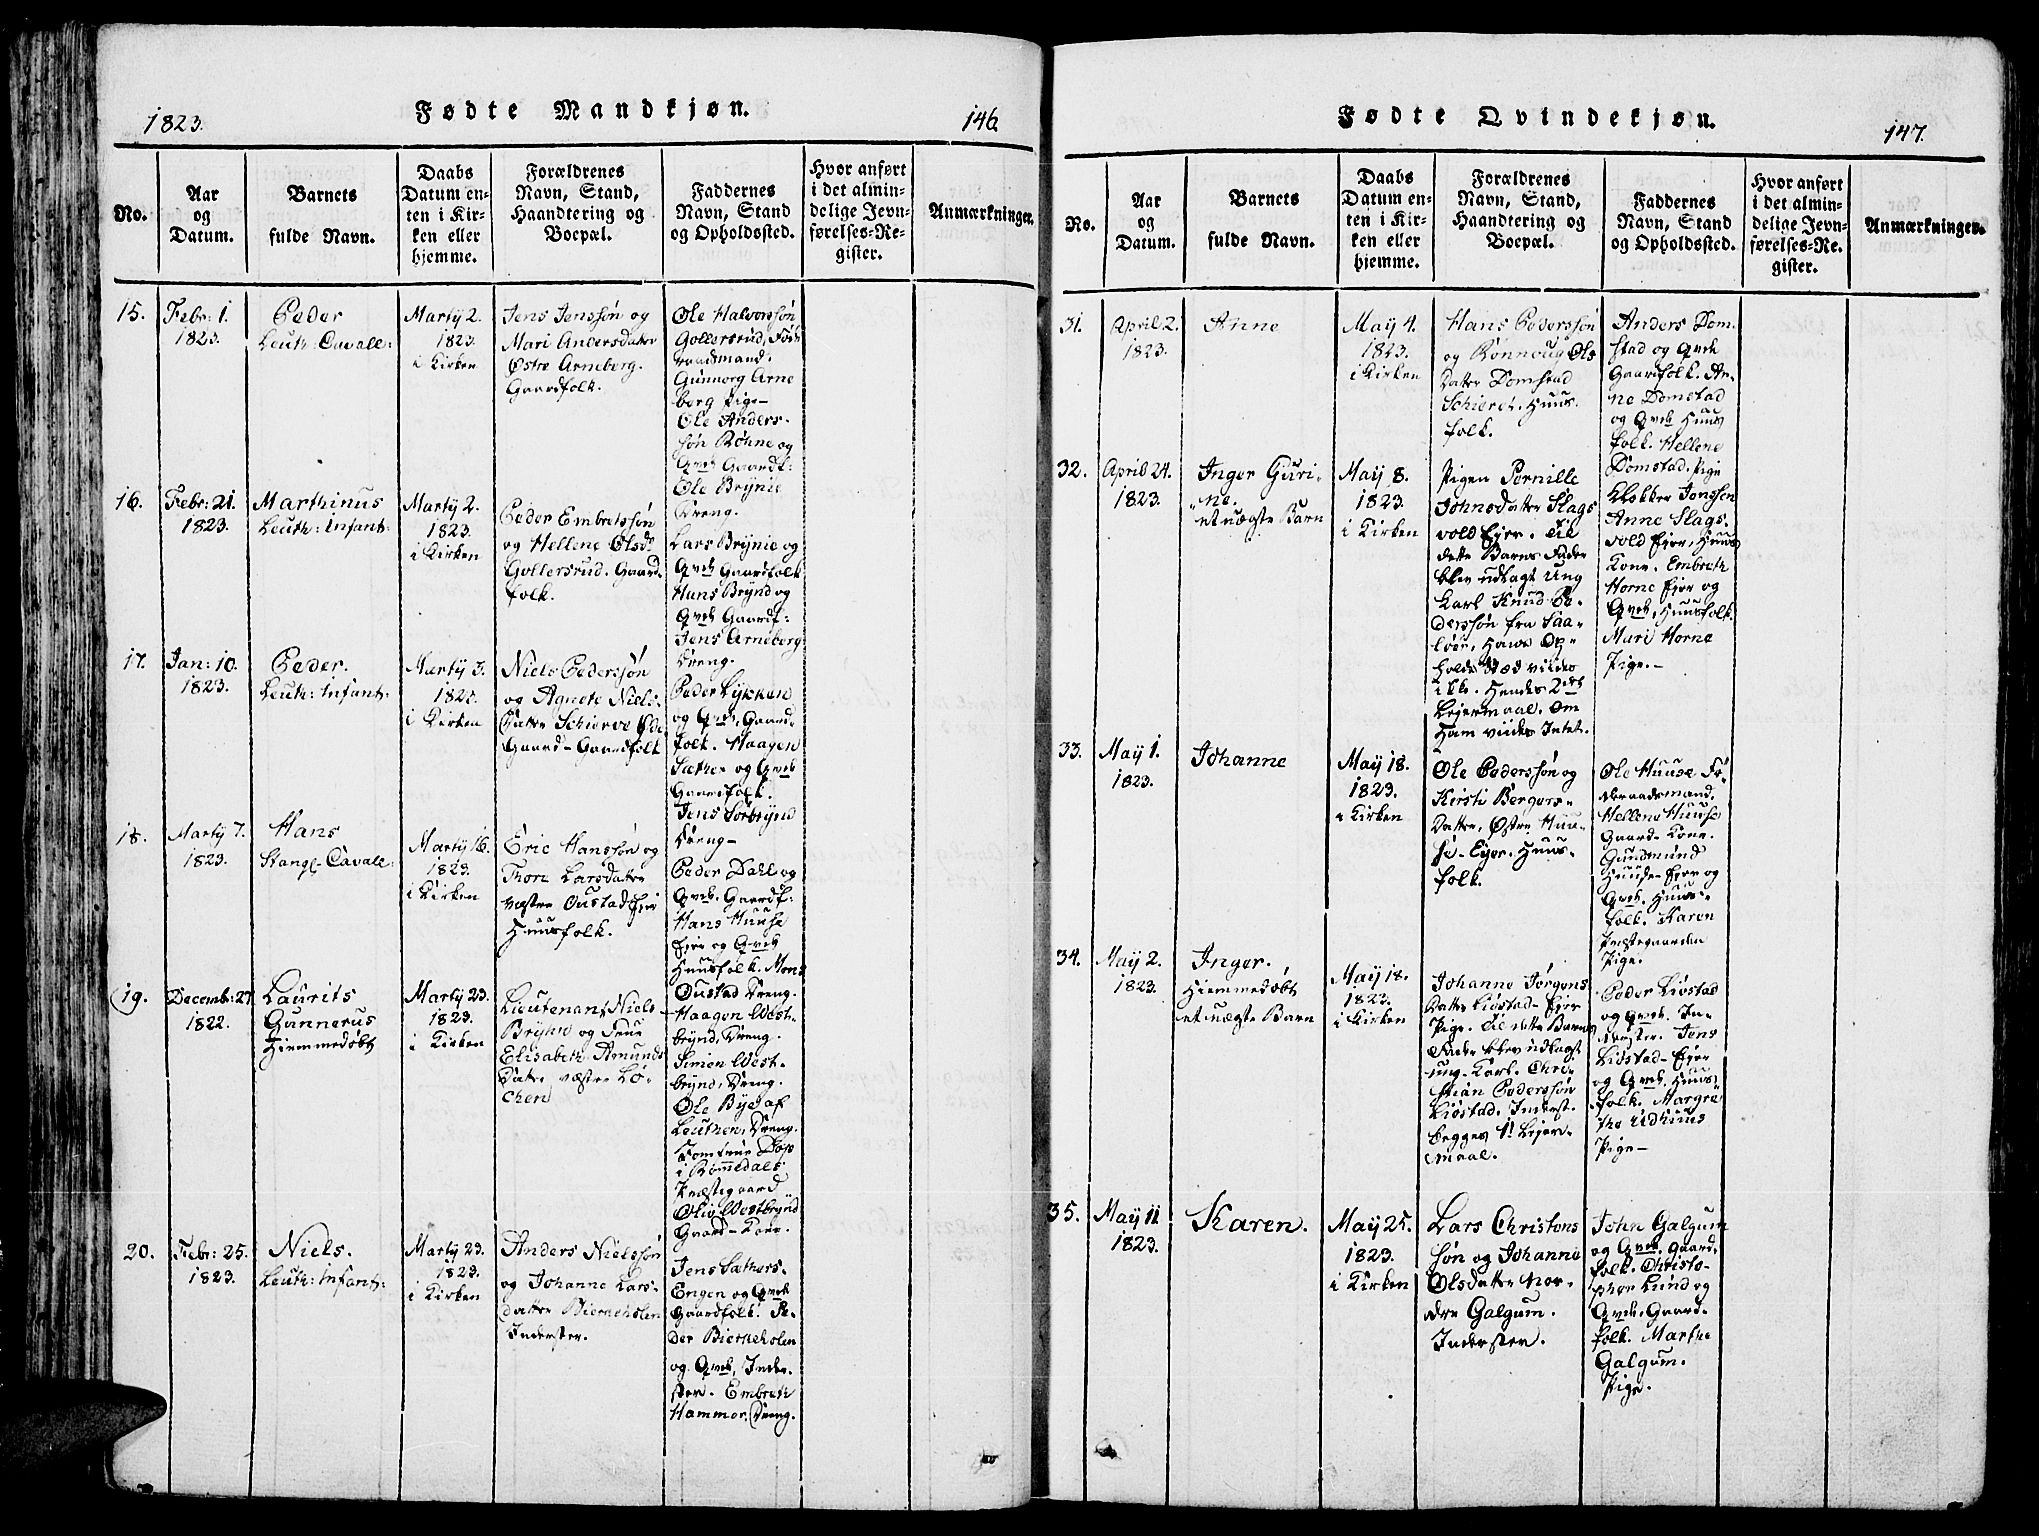 1823.
Fødte Mandkjøn.
146.
No.
Aar
og
Datum.
Barnets
fulde Navn.
Daabs
Datum en-
ten i Kir-
ken eller
hjemme.
Forældrenes
Navn, Stand,
Haandtering og
Boepæl.
Faddernes
Navn, Stand
og Opholdssted.
Hvor anført
i det almin-
delige Jevn-
førelses-Re-
gister.
Anmærkninger.
15.
Febr: 1.
1823.
Peder
Leuth: Cavall:
Martÿ 2.
1823.
i Kirken
Jens Jenssøn og
Mari Andersdatter
Østre Arneberg.
Gaardfolk.
Ole Halvorssøn
Gollersrud, Føde
raadsmand.
Gunnorg Arne
berg Pige-
Ole Anders-
søn Røhne og
Qvek Gaardf:
Ole Brÿnie
Dreng.
16.
Febr: 21.
1823.
Marthinus
Leuth: Infant:
Martÿ 2.
1823.
i Kirken
Peder Embretssøn
og Hellene Olsdr
Gollersrud. Gaard-
folk.
Lars Brÿnie og
Qvek Gaardfolk
Hans Brÿnd og
Qvek Gaardf:
Jens Arneberg
Dreng.
17.
Jan: 10.
1823.
Peder.
Leuth: Infant:
Martÿ 3.
1823.
i Kirken
Niels Pederssøn
og Agnete Niels-
Datter Schierve Øde
Gaard - Gaardfolk
Peder Lÿkken
og Qvek, Gaard-
folk. Haagen
Sæther og Qvek
Gaardfolk.
Jens Sørbrÿnd
Dreng-
18.
Martÿ 7.
1823.
Hans
Stang- Cavall:
Martÿ 16.
1823.
i Kirken
Eric Hanssøn og
Thore Larsdatter
væstre Oustad Ejer
Huusfolk.
Peder Dahl og
Qvek. Gaardf:
Hans Huuse
Ejer og Qvek
Huusfolk. Mons
Oustad Dreng.
19.
Decemb: 27
1822.
Laurits
Gunnerus
Hiemmedøbt
Martÿ 23.
1823.
i Kirken
Lieutenant Niels
Brÿnd og Frue
Elisabeth Amunds
Datter væstre Lø-
chen
Haagen West-
brÿnd, Dreng.
Simen West-
brÿnd, Dreng.
Ole Bÿe af
Leuthen, Dreng.
Jomfrue Dop
i Rommedals
Præstegaard
Oliv Westbrÿnd
Gaard-Kone.
20.
Febr: 25.
1823.
Niels.
Leuth: Infant:
Martÿ 23.
1823.
i Kirken
Anders Nielssøn
og Johanne Lars-
datter Bierneholen
Inderster.
Jens Sæthers-
Engen og Qvek
Gaardfolk. Pe-
der Bierneholen
og Qvek, Inder-
ster. Embreth
Hammer, Dreng.
Fødte Qvindekjøn.
147.
No.
Aar
og
Datum.
Barnets
fulde Navn.
Daabs
Datum en-
ten i Kir-
ken eller
hjemme.
Forældrenes
Navn, Stand,
Haandtering og
Boepæl.
Faddernes
Navn, Stand
og Opholdssted.
Hvor anført
i det almin-
delige Jevn-
førelses-Re-
gister.
Anmærkninger.
31.
April 2.
1823.
Anne
Maÿ 4.
1823.
i Kirken
Hans Pederssøn
og Rønnoug Ols
Datter Domstad
Schieret. Huus-
folk.
Anders Dom-
stad og Qvek
Gaardfolk. An-
ne Domstad
og Qvek Huus
folk. Hellene
Domstad. Pige
32.
April 24.
1823.
Inger Guri-
ne.
et uægte Barn
Maÿ 8.
1823.
i Kirken
Pigen Pernille
Johnsdatter Slags
vold Ejer. Til
dette Barns Fader
blev udlagt Ung
Karl Knud Pe-
derssøn fra Saa-
løer, Hans Op-
holds Sted vides
ikke. Hendes 2det
Lejermaal. Om
Ham viides Intet.
Klokker Jonssen
Anne Slags-
vold Ejer, Huus
Kone. Embreth
Horne Ejer og
Qvek, Huusfolk.
Mari Horne
Pige.-
33.
Maÿ 1.
1823.
Johanne
Maÿ 18.
1823.
i Kirken
Ole Pederssøn og
Kirsti Bergers-
Datter, Østre Huu-
se- Ejer. Huus-
folk.
Ole Huuse Fø-
deraadsmand.
Hellene Huuse
Gaard-Kone.
Gudmund
Huuse-Ejer og
Qvek. Huus-
folk. Karen
Præstegaarden
Pige.
34.
Maÿ 2.
1823.
Inger.
Hiemmedøbt
et uægte Barn
Maÿ 18.
1823.
i Kirken
Johanne Jørgens
Datter Liøstad-Ejer
Pige. Til dette Barns
Fader blev udlagt
ung-Karl. Chri-
stian Pederssøn
Liøstad. Inderst.
begges 1t Lejer-
maal.
Peder Liøstad
og Qvek. In-
derster. Jens
Liøstad-Ejer
og Qvek. Huus-
folk. Margre
the Udhuus
Pige-
35.
Maÿ 11
1823.
Karen.
Maÿ 25.
1823.
i Kirken
Lars Christens
søn og Johanne
Olsdatter Nor-
dre Galgum.
Inderster.
John Galgum
og Qvek. Gaard-
folk. Christo-
pher Lund og
Qvek, Gaard-
folk. Marthe
Galgum.
Pige.